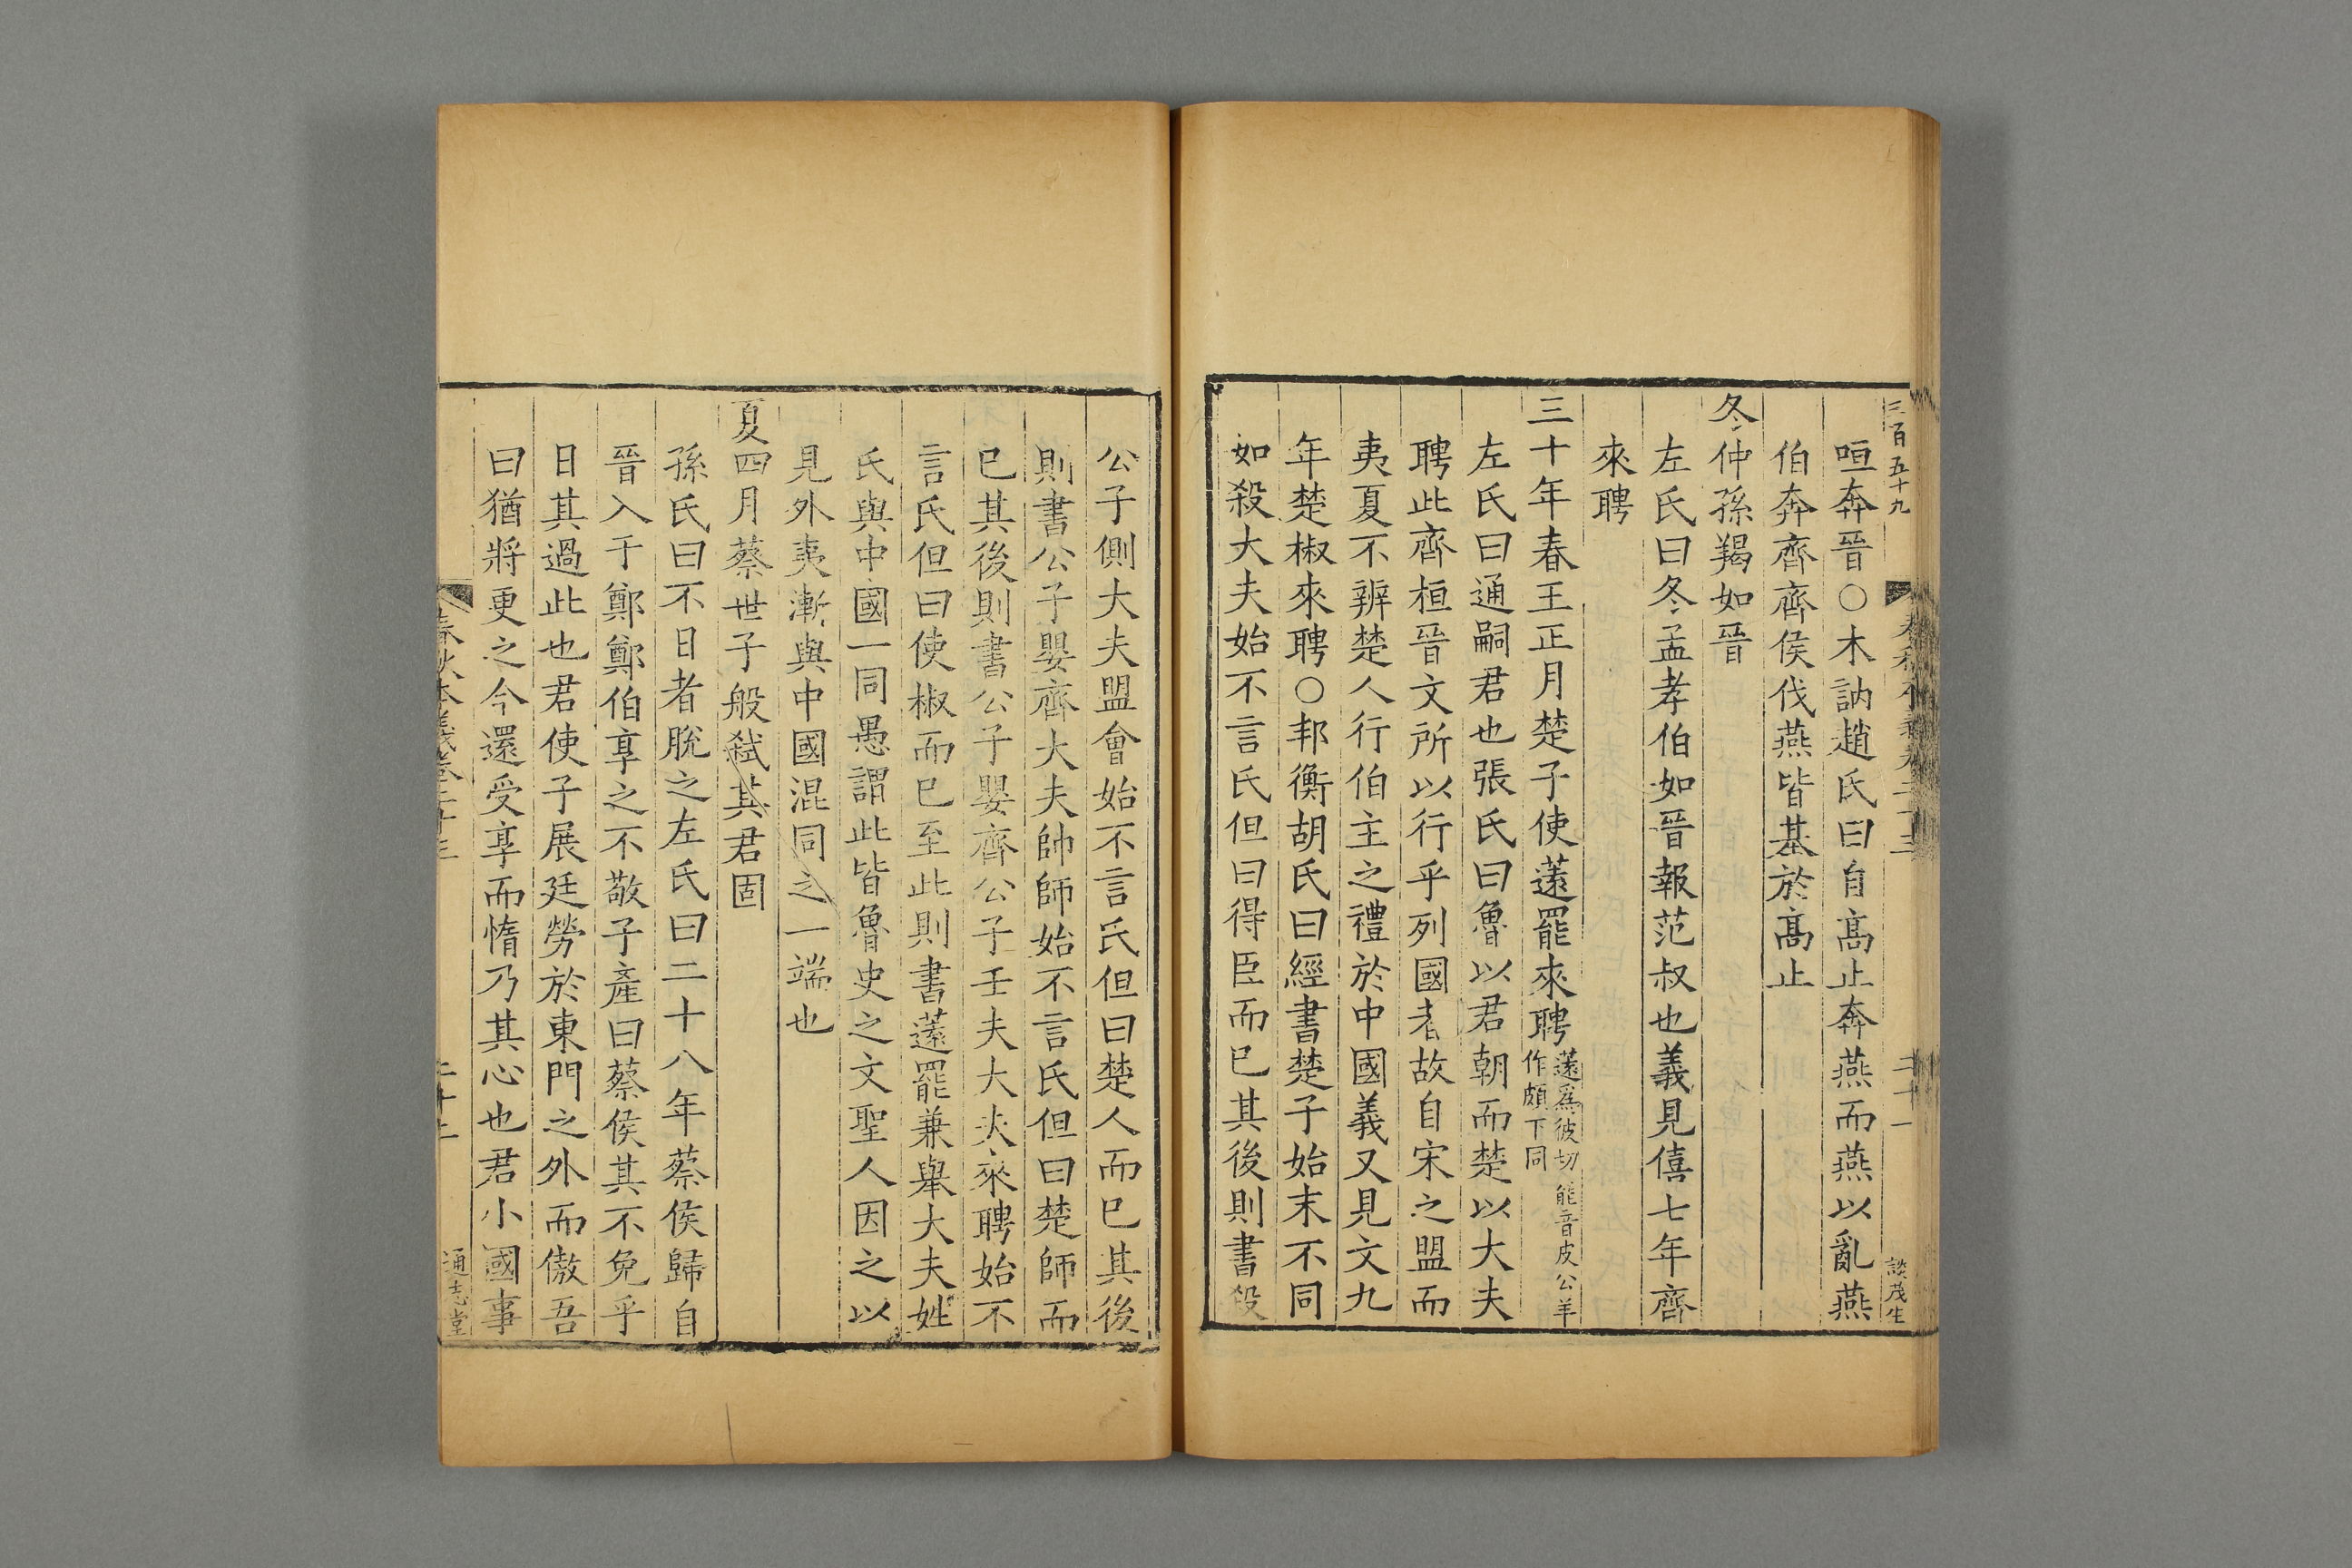 三百五十九
談茂生
咺奔晉○木訥趙氏曰自髙止奔燕而燕以亂燕
伯奔齊齊侯伐燕皆基於髙止
冬仲孫羯如晉
左氏曰冬孟孝伯如晉報范叔也義見僖七年齊
來聘
三十年春王正月楚子使薳罷來聘薳爲彼切 能音皮公羊
作頗下同
左氏曰通嗣君也張氏曰魯以君朝而楚以大夫
聘此齊桓晉文所以行乎列國者故自宋之盟而
夷夏不辨楚人行伯主之禮於中國義又見文九
年楚椒來聘○邦衡胡氏曰經書楚子始末不同
如殺大夫始不言氏但曰得臣而已其後則書殺
公子側大夫盟會始不言氏但曰楚人而已其後
則書公子嬰齊大夫帥師始不言氏但曰楚師而
已其後則書公子嬰齊公子壬夫大夫來聘始不
言氏但曰使椒而已至此則書薳罷兼舉大夫姓
氏與中國一同愚謂此皆魯史之文聖人因之以
見外夷漸與中國混同之一端也
夏四月蔡世子般弒其君固
孫氏曰不日者脫之左氏曰二十八年蔡侯歸自
晉入于鄭鄭伯享之不敬子產曰蔡侯其不免乎
日其過此也君使子展廷勞於東門之外而傲吾
曰猶將更之今還受享而惰乃其心也君小國事
通志堂